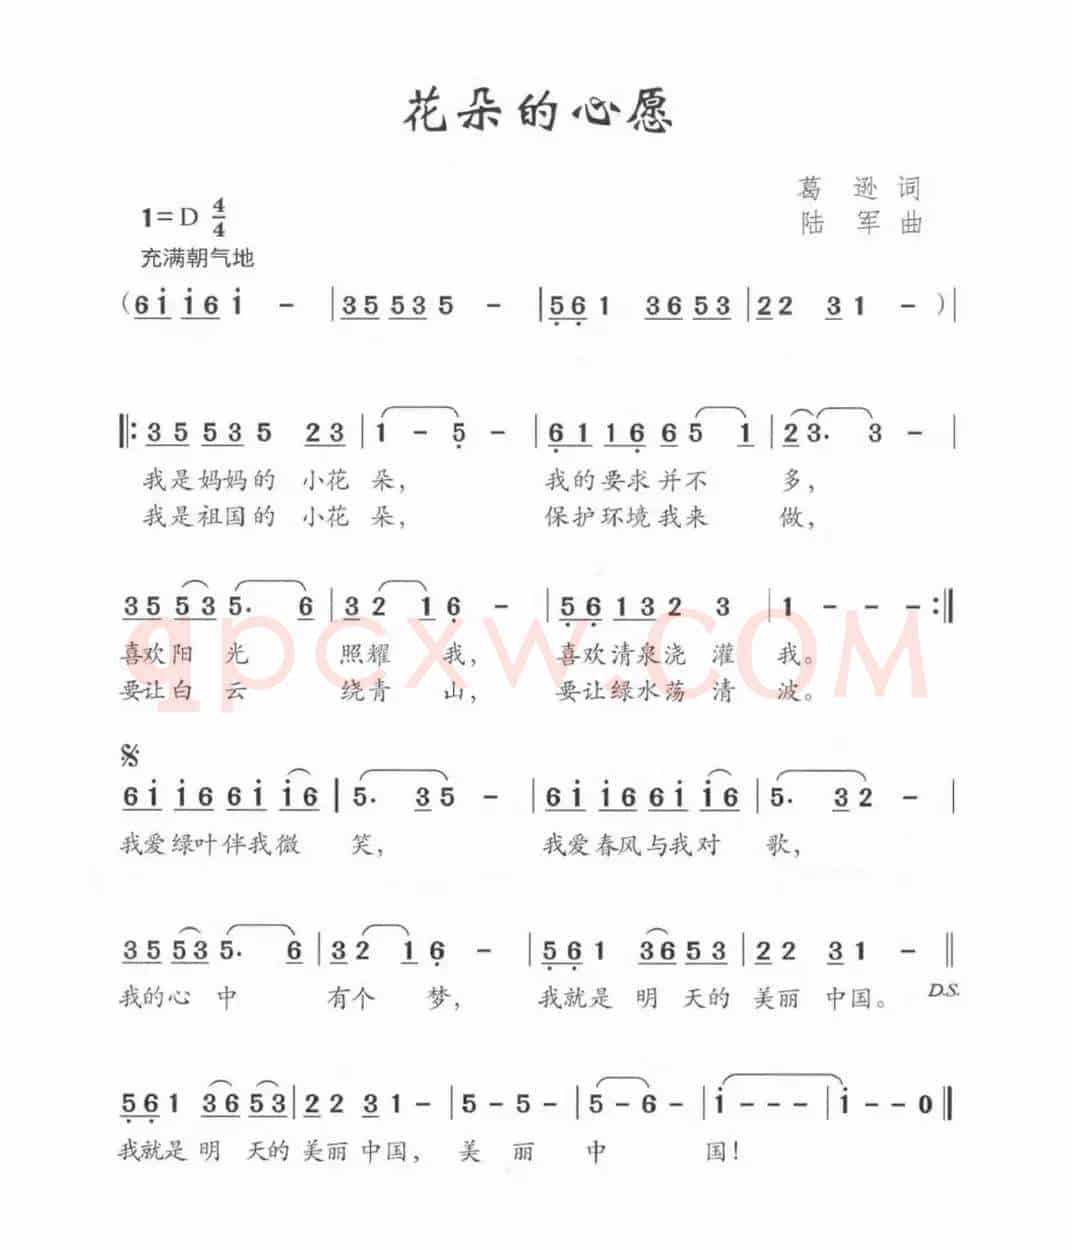 花朵的心愿
葛 逊 词
1=D 4/4
陆 军 曲
充满朝气地
(6i i6 i - |35 53 5 - |56 1 36 53|22 31 - )|
‖:35 53 5 23|1 - 5 - |61 16 6 5 1|23. 3 - |
我是妈妈的 小花 朵, 我的要求并不 多,
我是祖国的 小花 朵, 保护环境我来 做,
35 53 5. 6|32 16 - |56 13 2 3 |1 - - - :‖
喜欢阳 光 照耀 我, 喜欢清泉浇 灌 我。
要让白 云 绕青 山, 要让绿水荡 清 波。
qpcxw.COM
𝄋
6i i6 6i i6|5. 35 - |6i i6 6i i6|5. 32 - |
我爱绿叶伴我微 笑, 我爱春风与我对 歌,
35 53 5. 6|32 16 - |56 1 36 53|22 31 - ‖
我的心 中 有个 梦, 我就是 明 天的 美丽 中国。 D.S.
56 1 36 53|22 31 - |5 - 5 - |5 - 6 - |i - - - |i - - 0‖
我就是 明 天的 美丽 中国, 美 丽 中 国!